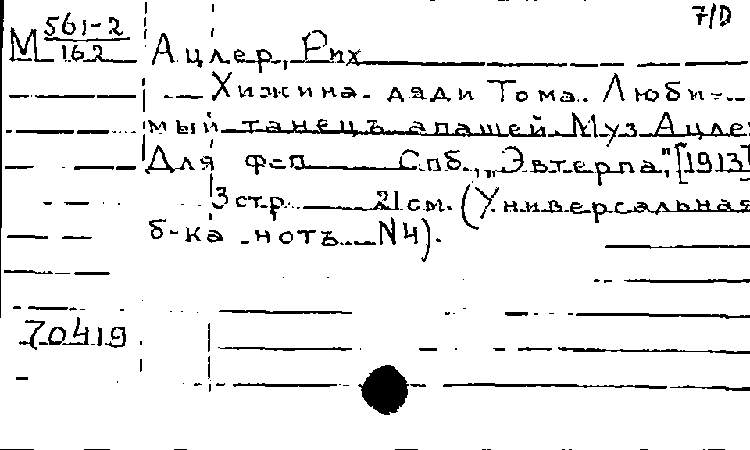 7/D
М 561-2/162
Ацлер, Рих
Хижина дяди Тома. Люби-
мый танецъ апашей. Муз Ацле
Для ф-п Спб., "Эвтерпа", [1913]
3 стр. 21 см. (Универсальная
б-ка нотъ N4).
70419